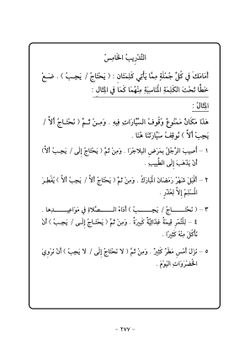 التدريب الخامس
أمامك في كل جملة مما يأتي كلمتان : ( يحتاج / يجب ) . ضع
خطًا تحت الكلمة المناسبة منهما كما في المثال :
المثال :
هذا مكان ممنوع وقوف السيارات فيه . ومن ثم ( نحتاج ألا /
يجب ألا ) نوقف سيارتنا هنا .
١ – أصيب الرجل بمرض . ومن ثم ( يحتاج إلى / يجب ألا)
أن يذهب إلى الطبيب .
٢ – أقبل شهر رمضان المبارك . ومن ثم ( يحتاج ألا / يجب ألا ) يفطر
المسلم إلا لعذر .
٣ – ( نحتاج / يجب ) أداء الصلاة في مواعيدها .
٤ – للتمر قيمة غذائية كبيرة . ومن ثم ( يحتاج إلى / يجب ) أن
نأكل منه كثيرًا .
٥ – نزل أمس مطر كثير . ومن ثم ( لا نحتاج إلى / لا يجب ) أن نروي
الخضروات اليوم .
- ٢٧٧ -